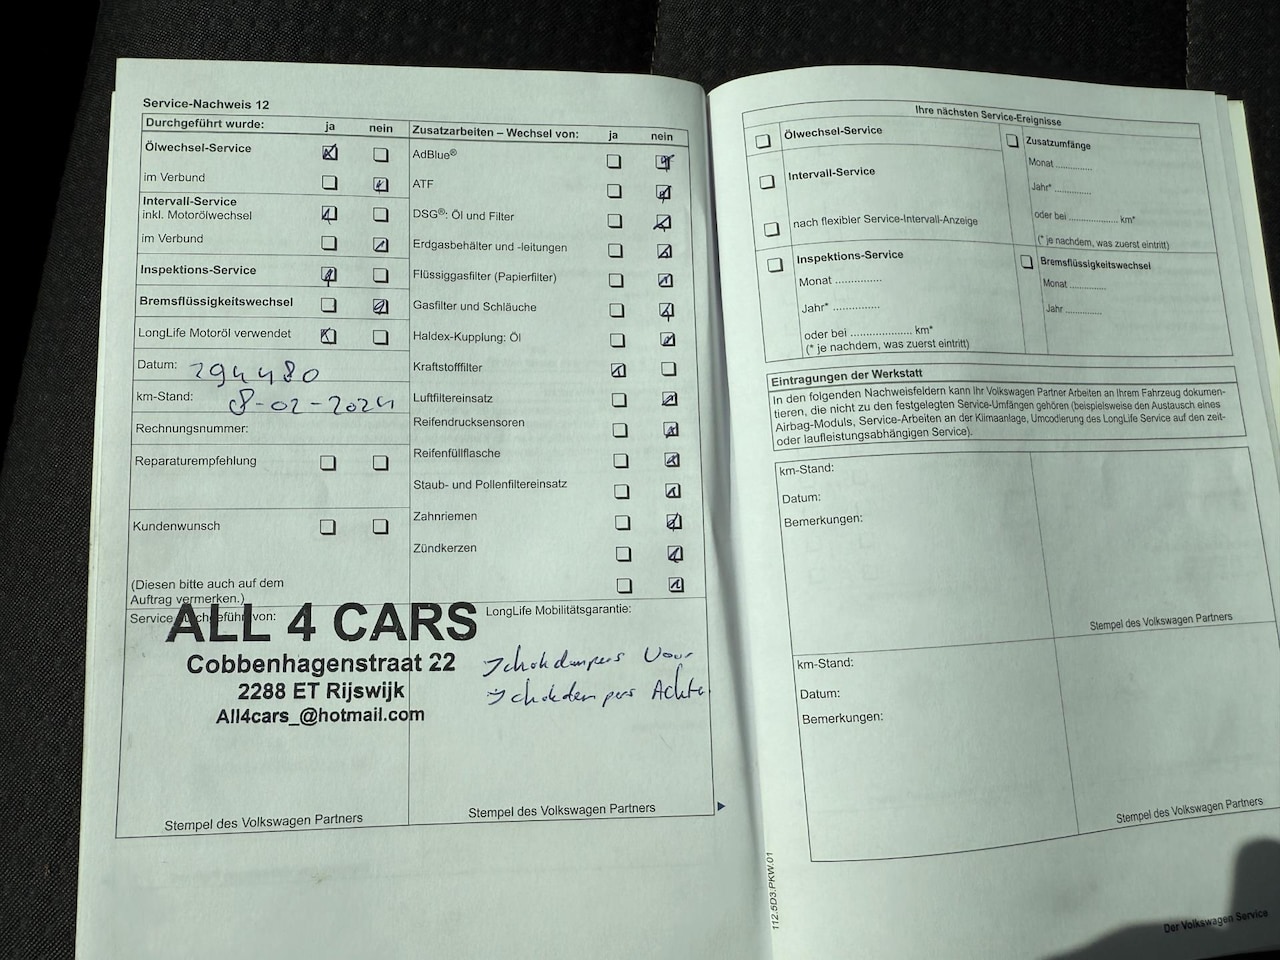 Service-Nachweis 12
Durchgeführt wurde: ja nein
Ölwechsel-Service
im Verbund
Intervall-Service
inkl. Motorölwechsel
im Verbund
Inspektions-Service
Bremsflüssigkeitswechsel
LongLife Motoröl verwendet
Datum: 294480
km-Stand: 8-02-2024
Rechnungsnummer:
Reparaturempfehlung
Kundenwunsch
(Diesen bitte auch auf dem
Auftrag vermerken.)
Service durchgeführt von:
ALL 4 CARS
Cobbenhagenstraat 22
2288 ET Rijswijk
All4cars_@hotmail.com
Stempel des Volkswagen Partners
Zusatzarbeiten – Wechsel von: ja nein
AdBlue®
ATF
DSG®: Öl und Filter
Erdgasbehälter und -leitungen
Flüssiggasfilter (Papierfilter)
Gasfilter und Schläuche
Haldex-Kupplung: Öl
Kraftstofffilter
Luftfiltereinsatz
Reifendrucksensoren
Reifenfüllflasche
Staub- und Pollenfiltereinsatz
Zahnriemen
Zündkerzen
LongLife Mobilitätsgarantie:
Schokdempers Voor
Schokdempers Achter
Stempel des Volkswagen Partners
Ihre nächsten Service-Ereignisse
Ölwechsel-Service
Intervall-Service
nach flexibler Service-Intervall-Anzeige
Inspektions-Service
Monat ...............
Jahr* ...............
oder bei .................... km*
(* je nachdem, was zuerst eintritt)
Zusatzumfänge
Monat ............
Jahr* ............
oder bei .................... km*
(* je nachdem, was zuerst eintritt)
Bremsflüssigkeitswechsel
Monat ............
Jahr ............
Eintragungen der Werkstatt
In den folgenden Nachweisfeldern kann Ihr Volkswagen Partner Arbeiten an Ihrem Fahrzeug dokumen-
tieren, die nicht zu den festgelegten Service-Umfängen gehören (beispielsweise den Austausch eines
Airbag-Moduls, Service-Arbeiten an der Klimaanlage, Umcodierung des LongLife Service auf den zeit-
oder laufleistungsabhängigen Service).
km-Stand:
Datum:
Bemerkungen:
Stempel des Volkswagen Partners
km-Stand:
Datum:
Bemerkungen:
Stempel des Volkswagen Partners
112.5D3.PKW.01
Der Volkswagen Service